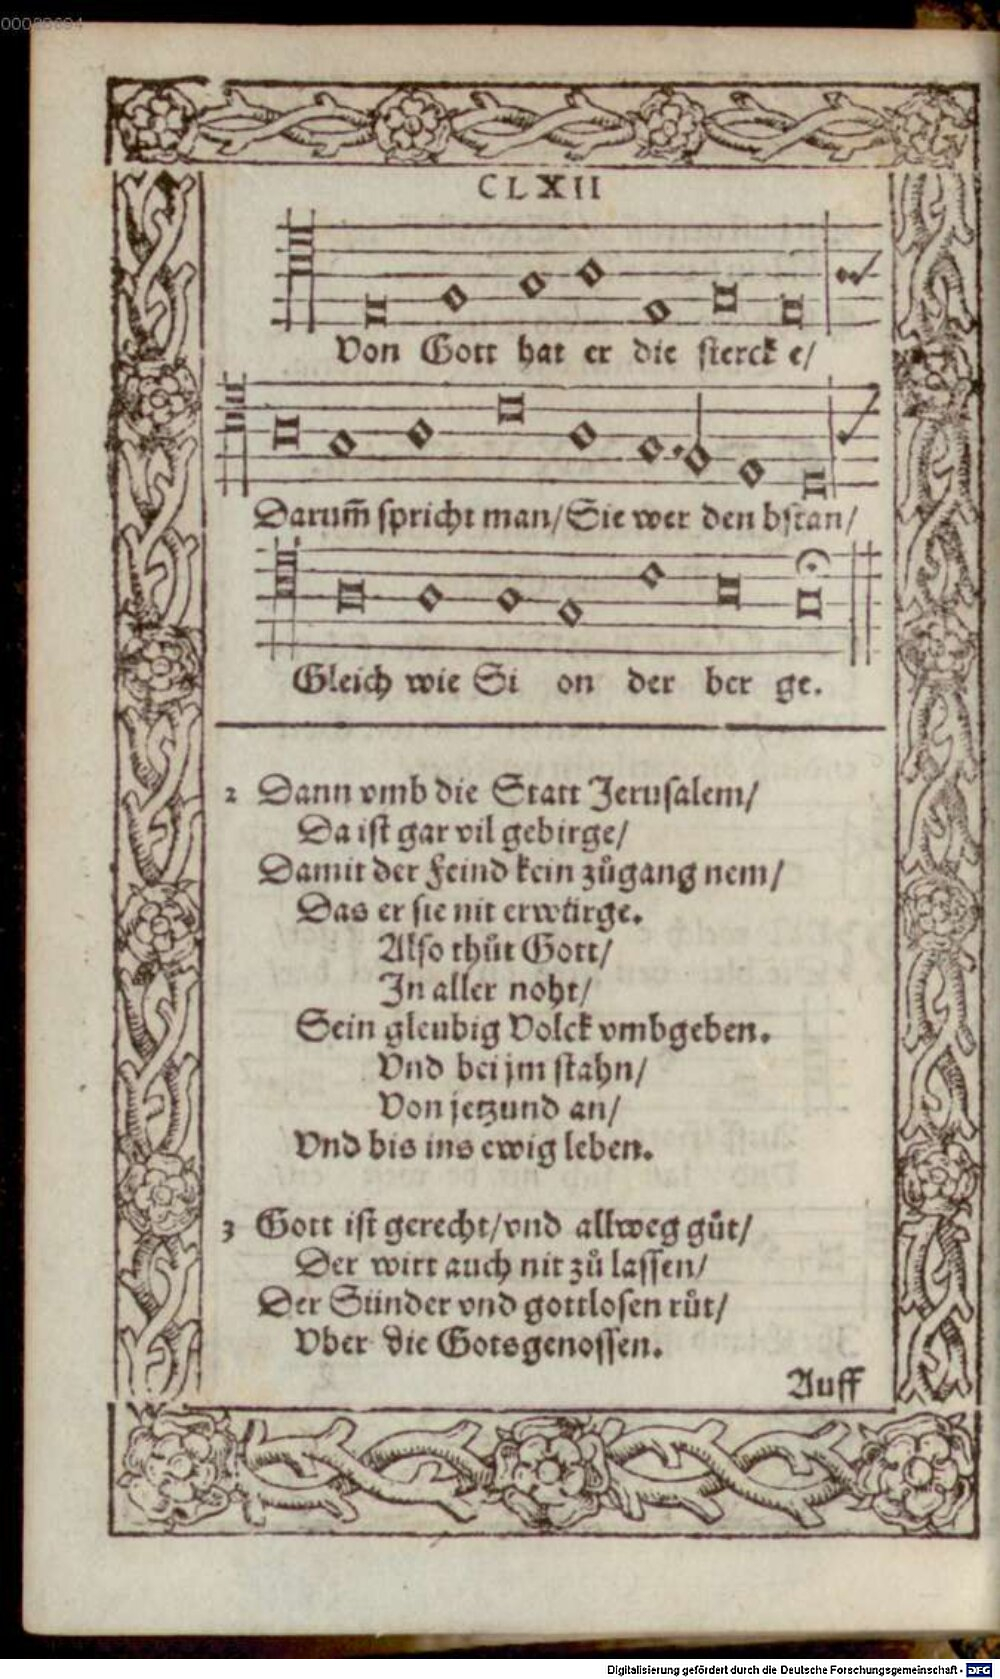 00088694
CLXII
Von Gott hat er die sterck e/
Darum̄ spricht man/Sie wer den bstan/
Gleich wie Si on der ber ge.
2 Dann vmb die Statt Jerusalem/
Da ist gar vil gebirge/
Damit der Feind kein zůgang nem/
Das er sie nit erwürge.
Also thůt Gott/
In aller noht/
Sein gleubig Volck vmbgeben.
Vnd bei jm stahn/
Von jetzund an/
Vnd bis ins ewig leben.
3 Gott ist gerecht/vnd allweg gůt/
Der wirt auch nit zů lassen/
Der Sünder vnd gottlosen růt/
Vber die Gotsgenossen.
Auff
Digitalisierung gefördert durch die Deutsche Forschungsgemeinschaft - DFG